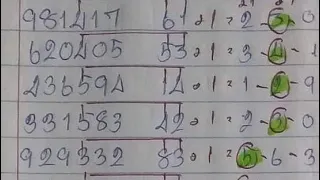 981417 61 = 1 = 2 - 3 - 0
620405 53 = 1 = 3 - 4 - 1
436594 14 = 1 = 1 - 2 - 9
331583 42 = 1 = 2 - 3 - 0
929332 83 = 1 = 5 - 6 - 3